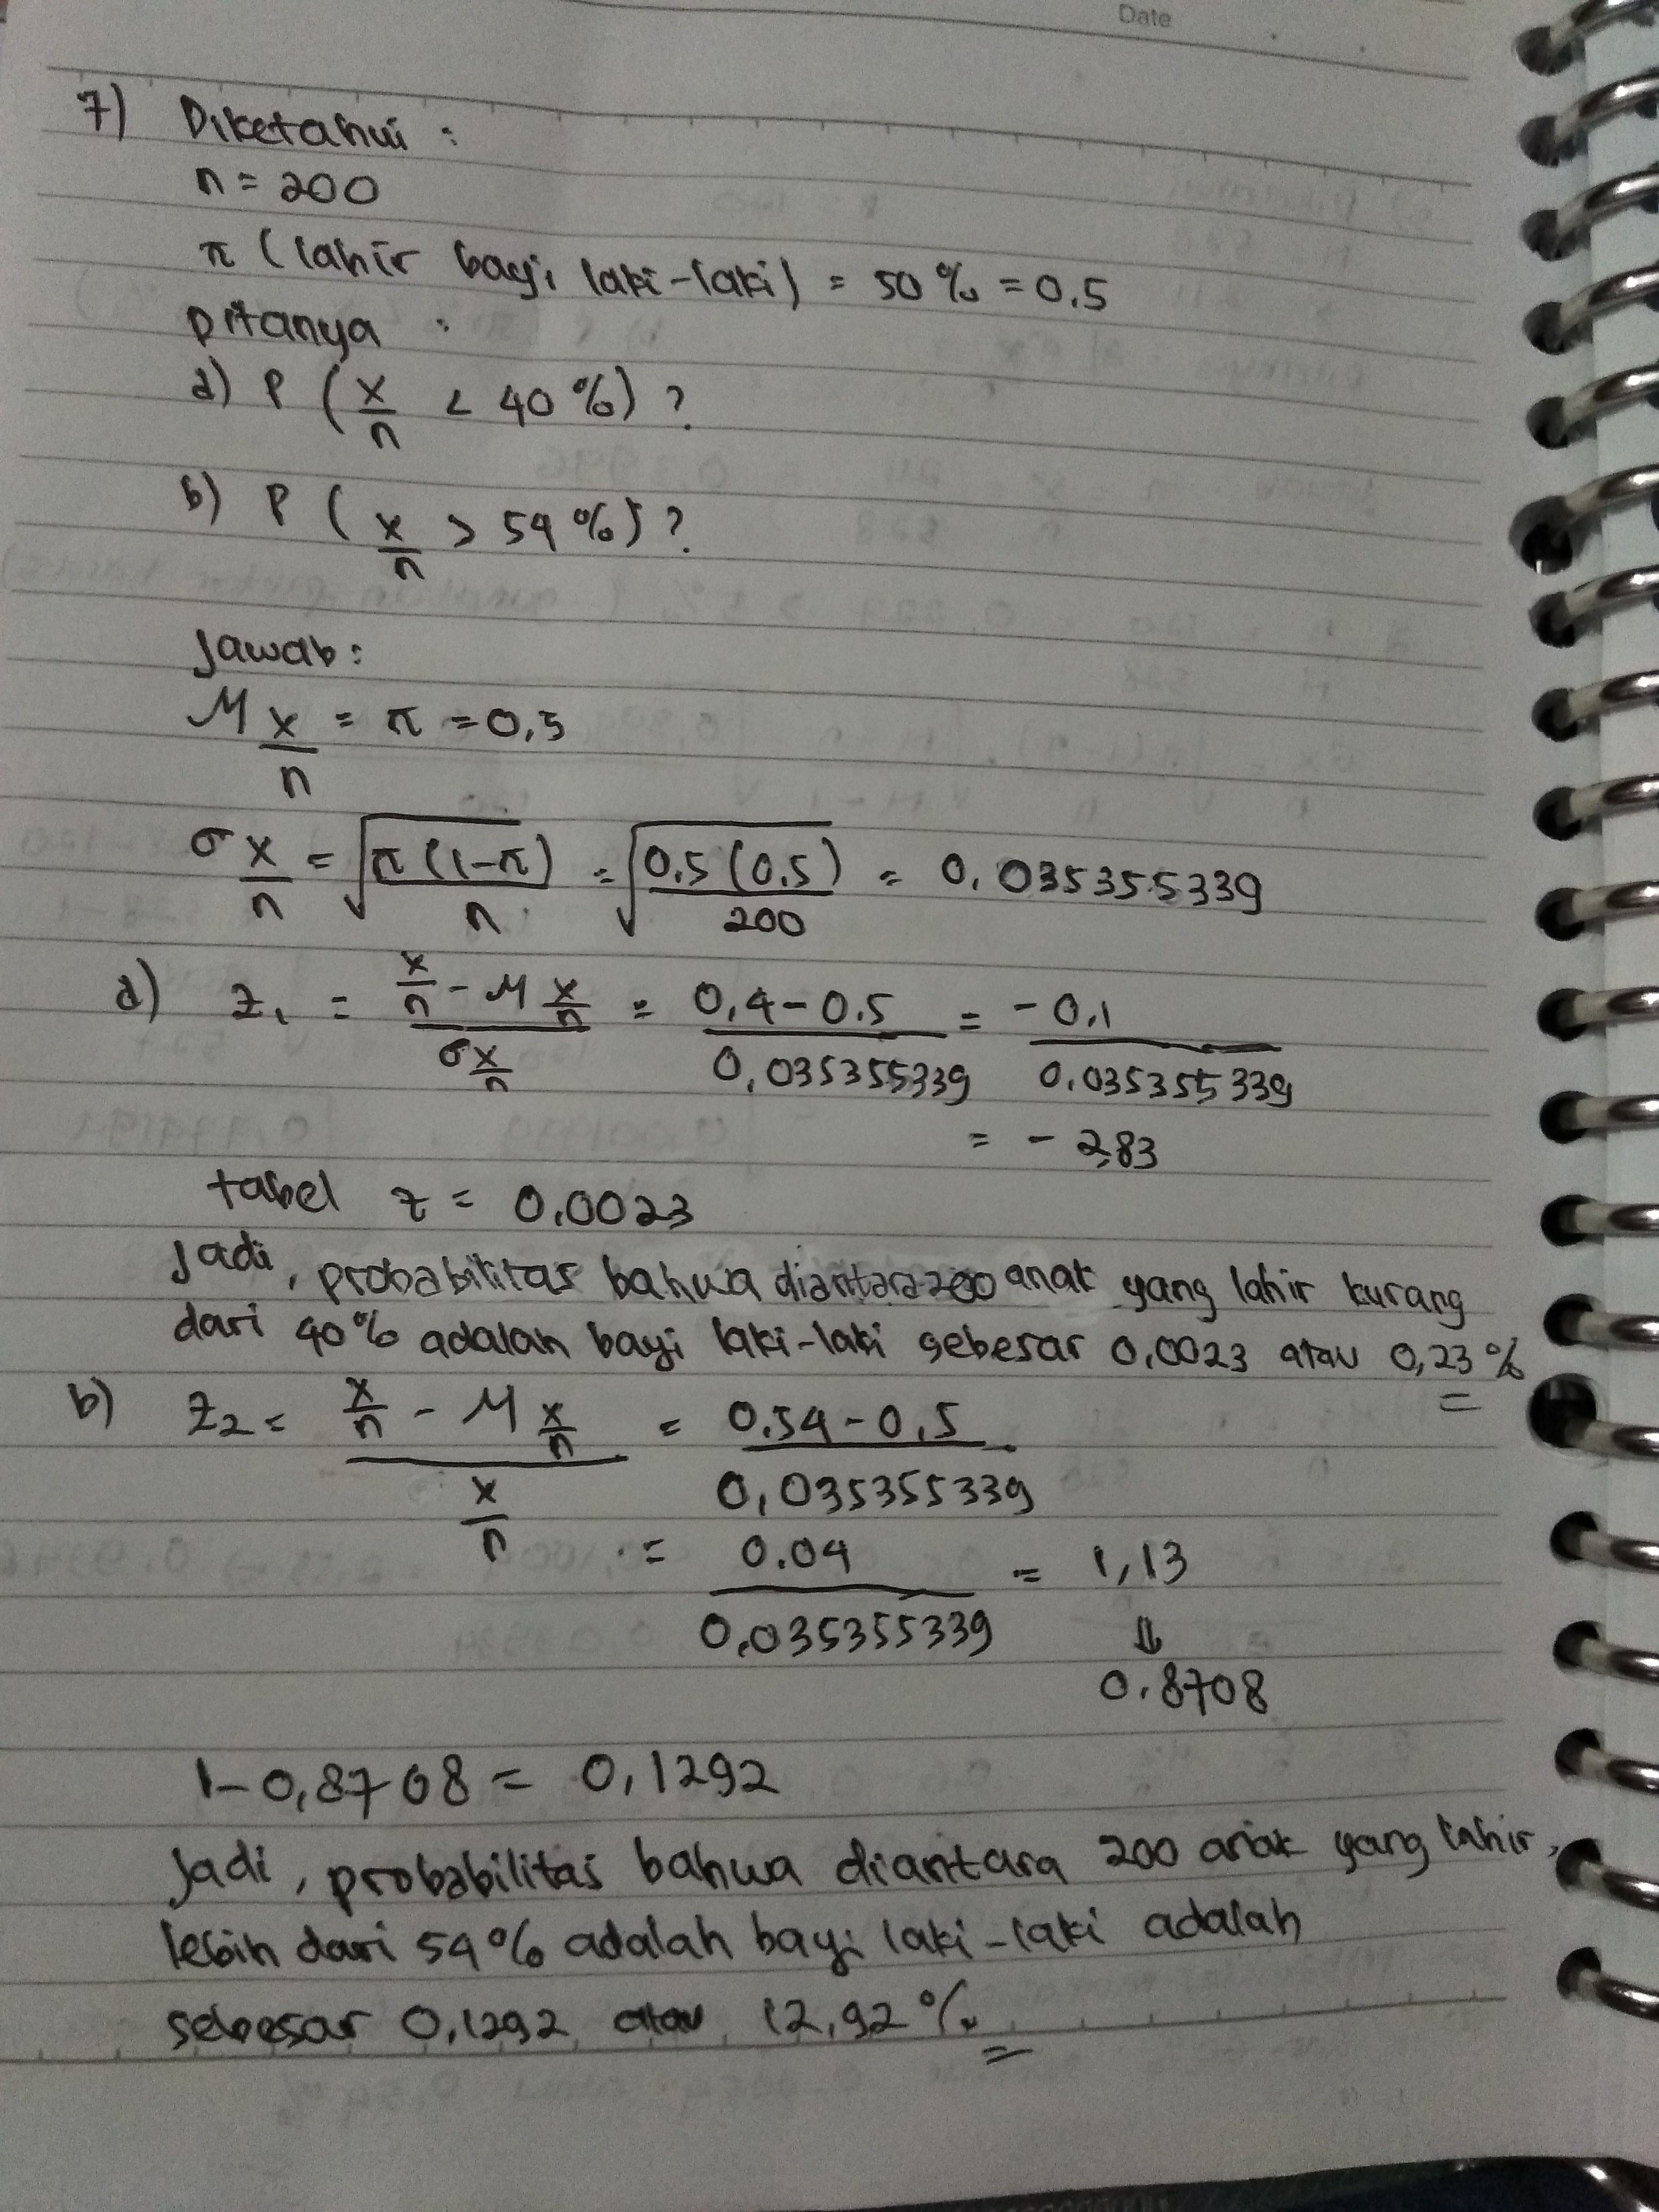 Date
7) Diketahui :
n = 200
π (lahir bayi laki-laki) = 50% = 0.5
Ditanya :
a) P (x/n < 40%) ?
b) P (x/n > 54%) ?
Jawab :
μ x/n = π = 0,5
σ x/n = √(π(1-π)/n) = √(0.5(0.5)/200) = 0,035355339
a) z₁ = (x/n - μ x/n)/(σ x/n) = (0,4-0.5)/0,035355339 = -0,1/0,035355339
= - 2,83
tabel z = 0,0023
Jadi, probabilitas bahwa diantara 200 anak yang lahir kurang
dari 40% adalah bayi laki-laki sebesar 0,0023 atau 0,23%
b) z₂ = (x/n - μ x/n)/(x/n) = (0.54-0,5)/0,035355339
= 0.04/0,035355339 = 1,13
⇓
0.8708
1-0,8708 = 0,1292
Jadi, probabilitas bahwa diantara 200 anak yang lahir,
lebih dari 54% adalah bayi laki-laki adalah
sebesar 0,1292 atau 12,92%